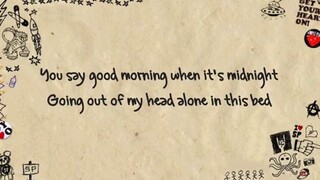 GET YOUR HEART ON!
You say good morning when it's midnight
Going out of my head alone in this bed
I ♥ SP
SP